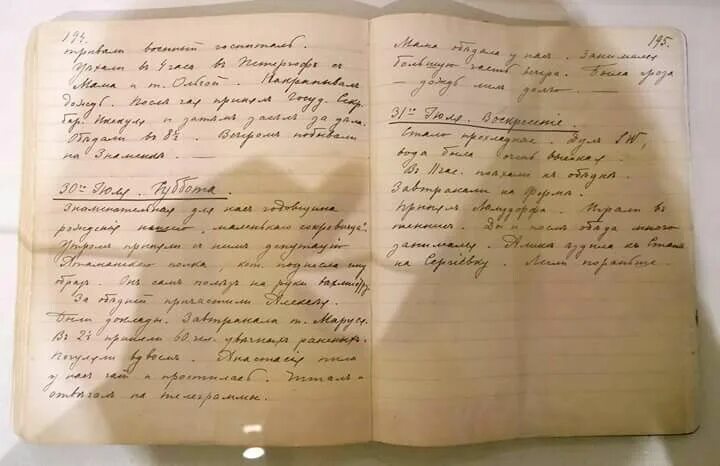 194.
тривали военный госпиталь.
Уѣхали въ 4 часа въ Петергофъ съ
Мама и т. Ольгой. Накрапывалъ
дождь. Послѣ чая принялъ Госуд. Секр.
бар. Икскуля и затѣмъ засѣлъ за дѣла.
Обѣдали въ 8½. Вечеромъ побывали
на Знаменкѣ. —
30го Іюля. Суббота.
Знаменательная для насъ годовщина
рожденія нашего „маленькаго сокровища".
Утромъ приняли съ нимъ депутацію
Атаманскаго полка, кот. поднесла ему
образъ. Онъ самъ пошелъ на руки
За обѣдней причастили Алексѣя.
Были доклады. Завтракала т. Маруся.
Въ 2½ приняли 60 чел. увѣчныхъ раненыхъ.
Погуляли вдвоемъ. Анастасія пила
у насъ чай и простилась. Читалъ и
отвѣчалъ на телеграммы.
195.
Мама обѣдала у насъ. Занимался
большую часть вечера. Была гроза
— дождь лилъ долго. —
31го Іюля. Воскресеніе.
Стало прохладнѣе. Дулъ SW,
вода была очень высокая.
Въ 11 час. поѣхали къ обѣднѣ.
Завтракали на фермѣ.
Принялъ Ламздорфа. Играли въ
теннисъ. До и послѣ обѣда много
занимался. Аликс ѣздила къ Станѣ
на Сергіевку. Легли пораньше.